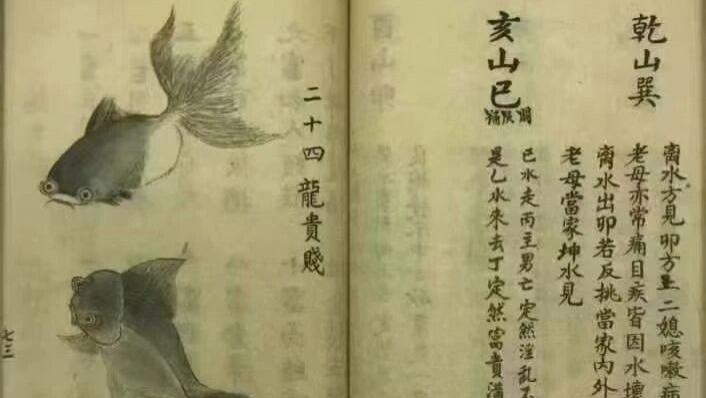 乾山巽
離水方見卯方
二媳咳嗽病
老母亦常痛目疾皆因水壞
離水出卯若反挑當家內外
老母當家坤水見
亥山巳
巳水走丙主男亡定然淫亂不
是乙水來去丁定然富貴滿
二十四龍貴賤
七三